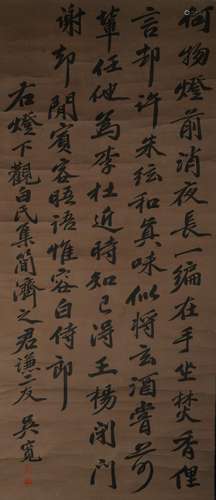 何物燈前消夜長一編在手坐焚香俚
言却許朱絃和真味似將玄酒嘗前
輩任他為李杜近時知己得王楊閉門
謝却閒賓客晤語惟容白侍郎
右燈下觀白氏集簡濟之君謙二友 吳寬